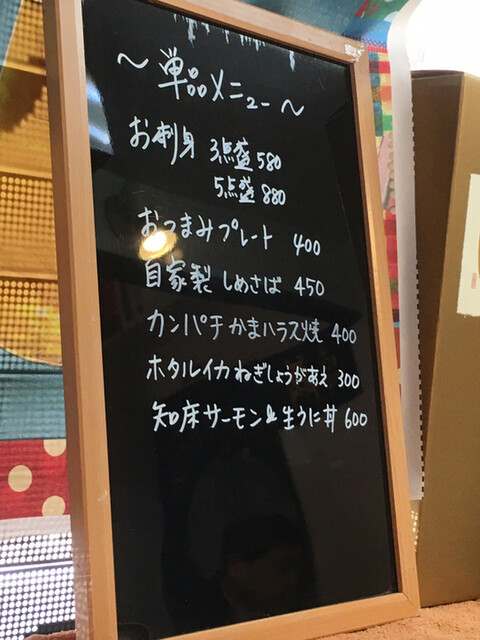 ～単品メニュー～
お刺身 3点盛 580
5点盛 880
おつまみプレート 400
自家製しめさば 450
カンパチかまハラス焼 400
ホタルイカねぎしょうがあえ 300
知床サーモン&生うに丼 600